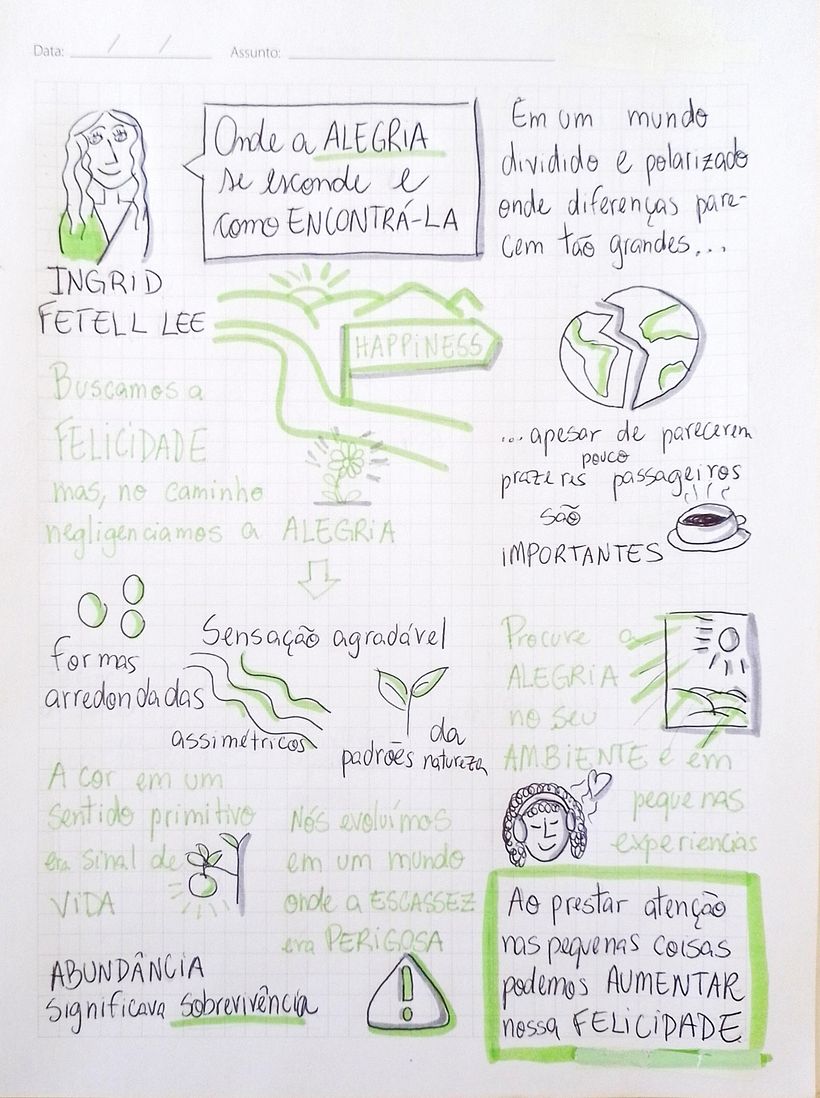 Data: ___/___/___ Assunto: ___
Onde a ALEGRIA
se esconde e
como ENCONTRÁ-LA
INGRID
FETELL LEE
HAPPINESS
Buscamos a
FELICIDADE
mas, no caminho
negligenciamos a ALEGRIA
formas
arredondadas
Sensação agradável
assimétricos
padrões da
natureza
A cor em um
sentido primitivo
era sinal de
VIDA
Nós evoluímos
em um mundo
onde a ESCASSEZ
era PERIGOSA
ABUNDÂNCIA
significava sobrevivência
Em um mundo
dividido e polarizado
onde diferenças pare-
cem tão grandes...
...apesar de parecerem
pouco
prazeres passageiros
são
IMPORTANTES
Procure a
ALEGRIA
no seu
AMBIENTE e em
pequenas
experiencias
Ao prestar atenção
nas pequenas coisas
podemos AUMENTAR
nossa FELICIDADE